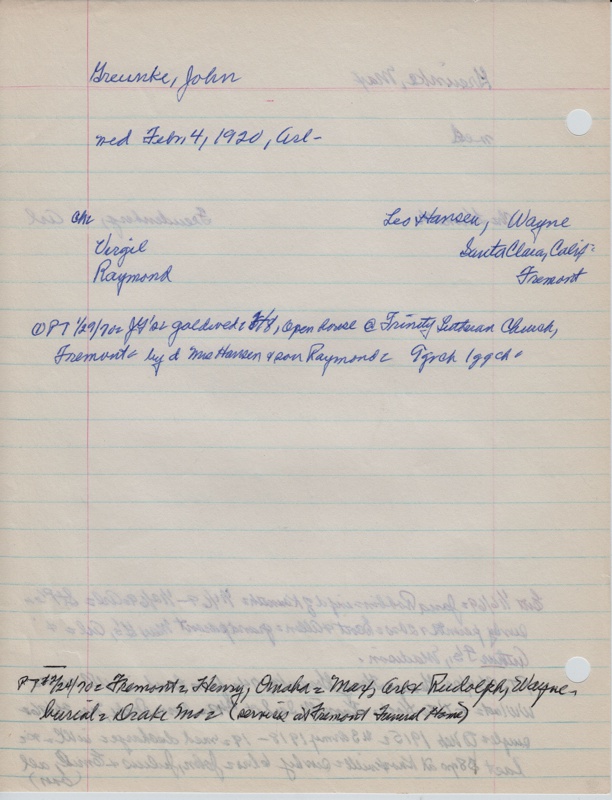 Greunke, John
med Febr 4, 1920, Arl-
chi Leo Hansen, Wayne
Virgil Santa Clara, Calif=
Raymond Fremont
PT 1/29/70= goldwed= 2/8, open house @ Trinity Lutheran Church,
Fremont= by d Mrs Hansen & son Raymond= 7grch 1ggch=
PT 12/24/70= Fremont= Henry, Omaha= Max, Arl& Rudolph, Wayne=
burial= Drake Mo= (services at Fremont Funeral Home)